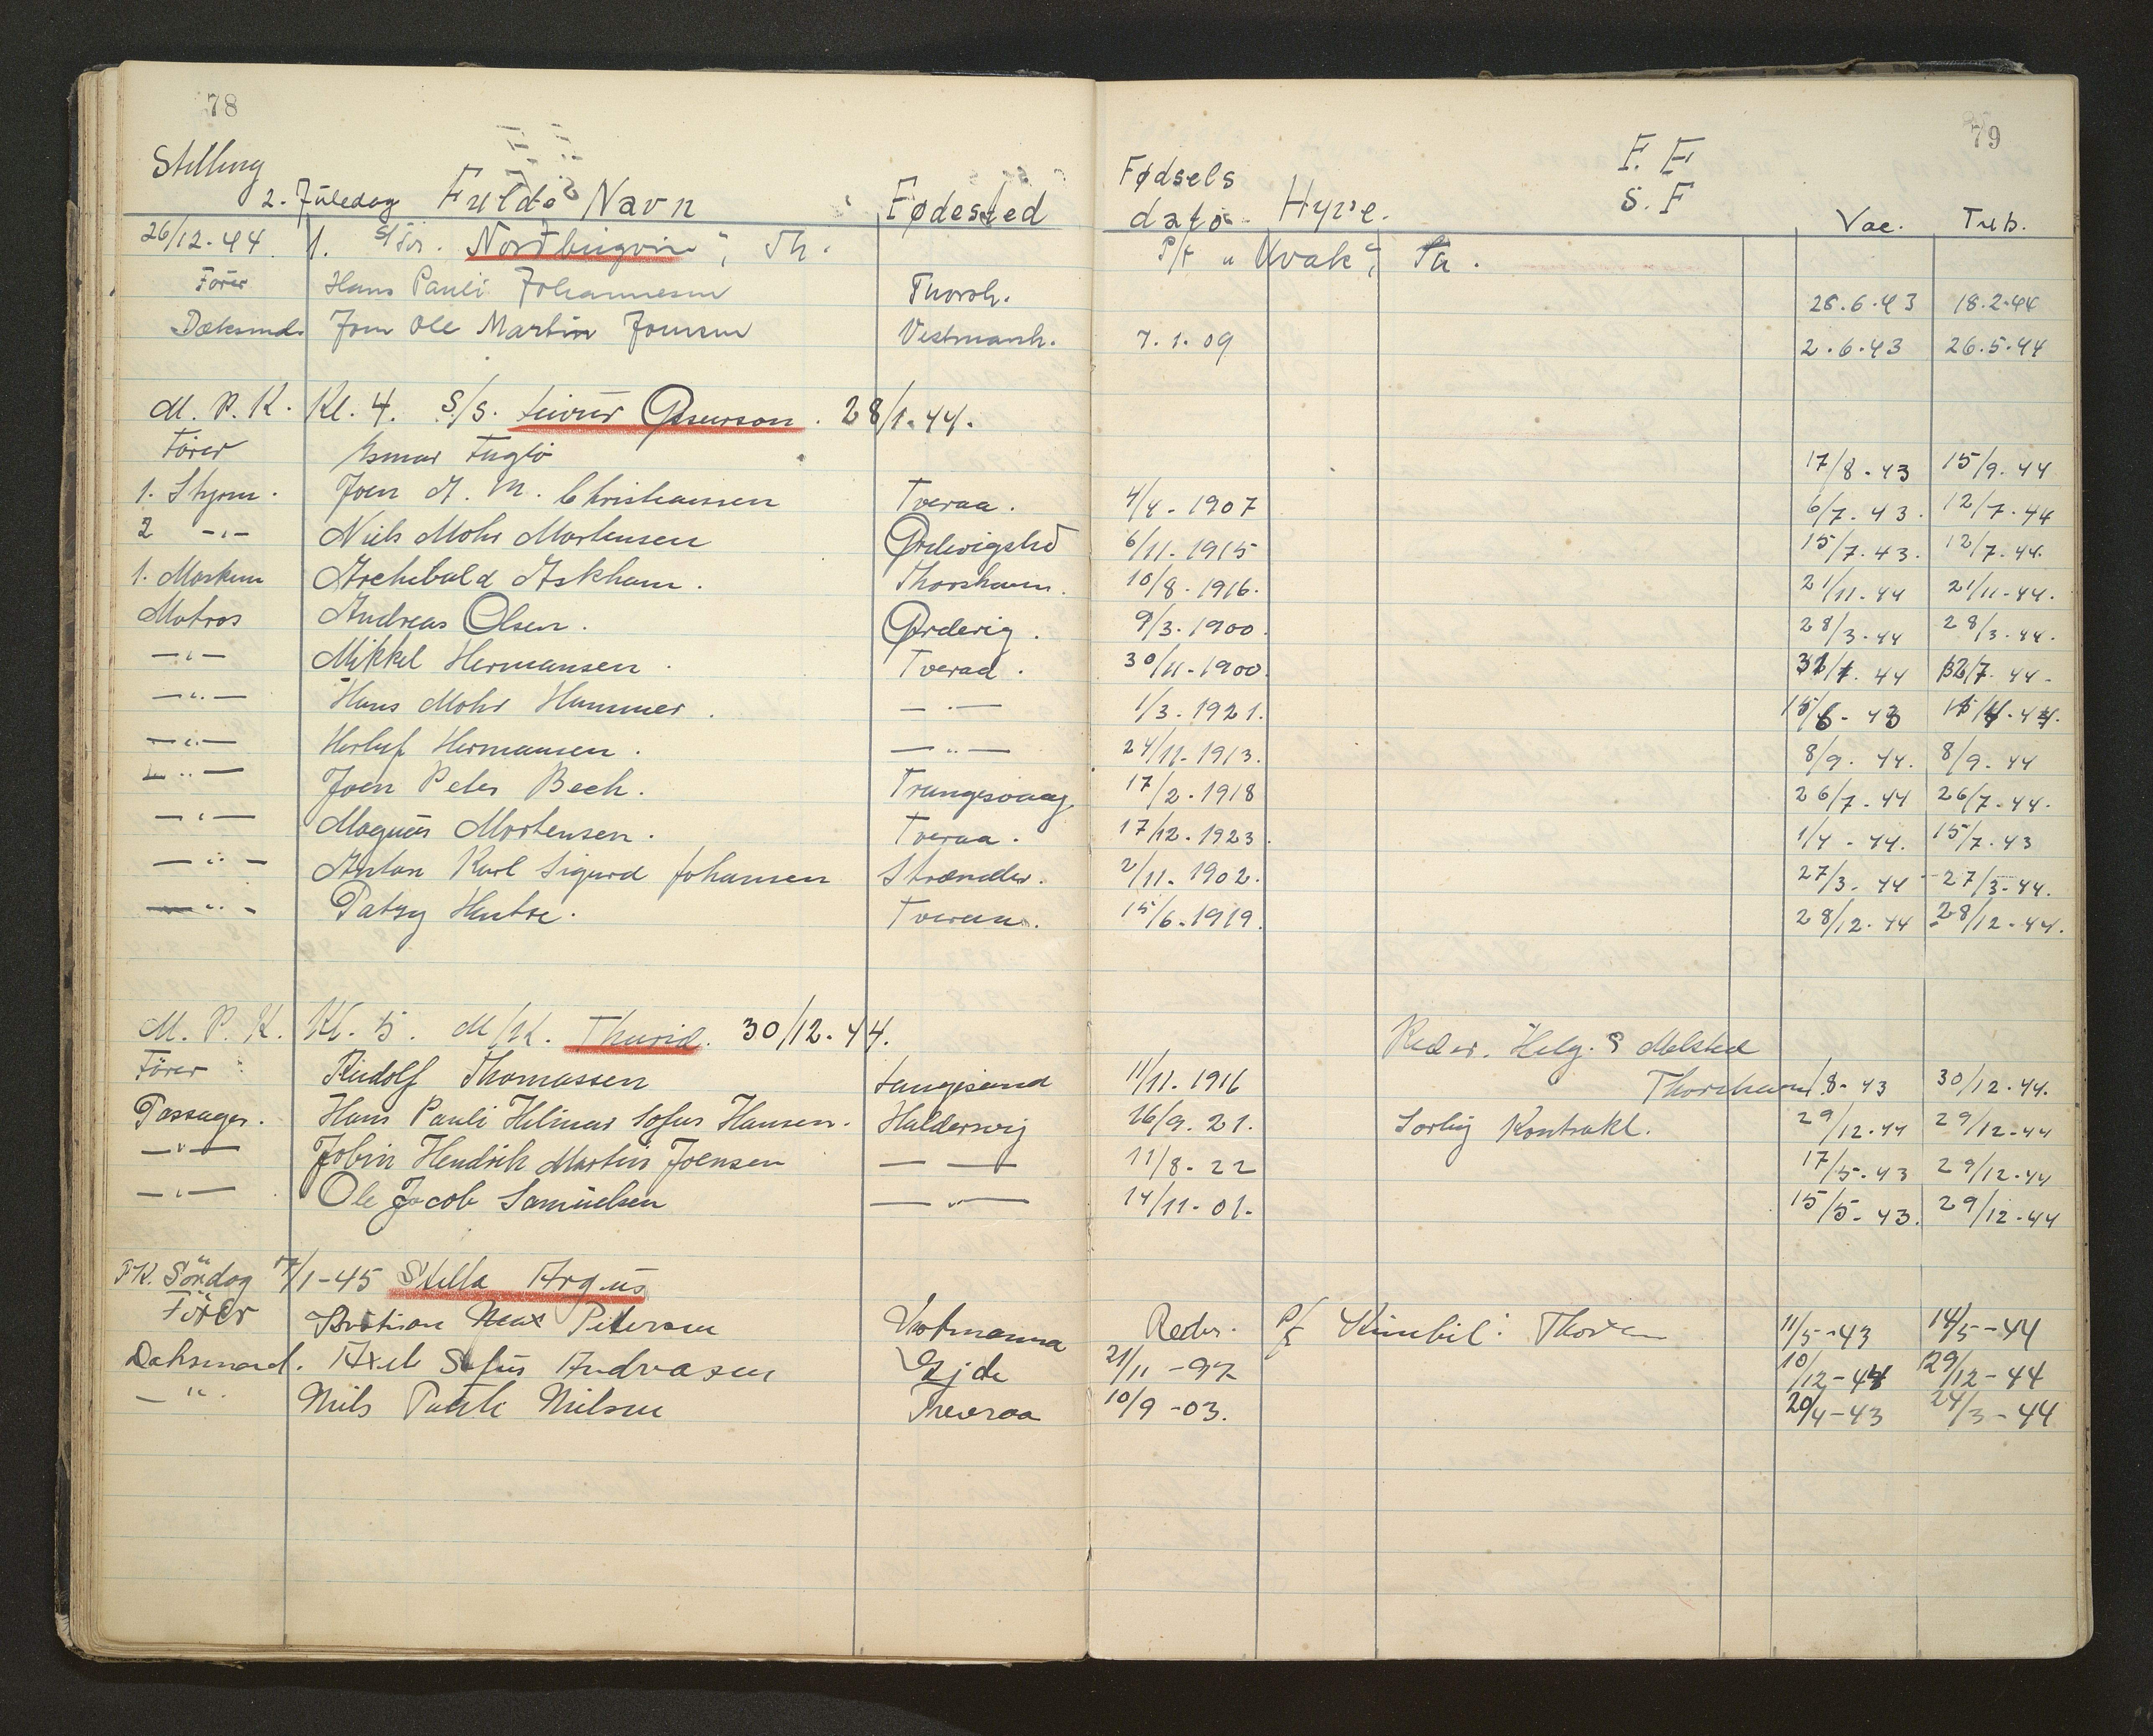 78
79
Stilling 2. Juledag Fulde Navn Fødested Fødsels dato Hyre. F. E S. F Vac. Tub.
26/12-44. 1. Th. P/f "Kvak",
Fører Hans Pauli Johannesen Thorsh. 28.6.43 18.2.44
Dæksmd. Jom Ole Martin Joensen Vestmanh. 7.1.09 2.6.43 26.5.44
M. P. K. Kl. 4. S/S. 28/1-44.
Fører Fuglö 17/8-43 15/9-44
1. Styrm. Joen J. M. Christiansen Tveraa. 4/4-1907 6/7-43. 12/7-44
2 -"- Niels Mohr Mortensen 6/11-1915 15/7-43. 12/7-44.
1. Maskm Archibald Askham. Thorshavn. 10/8-1916. 21/11-44 21/11-44.
Matros Andreas Olsen. Ørderig. 9/3-1900. 28/3-44 28/3-44.
-"- Mikkel Hermansen. Tveraa. 30/11-1900. 44 44-
-"- Hans Mohr Hammer. -"- 1/3-1921.
-"- Herluf Hermansen. -"- 24/11-1913. 8/9-44. 8/9-44
-"- Joen Peter Bech. Trangesvaag 17/2-1918 26/7-44 26/7-44.
-"- Magnus Mortensen. Tveraa. 17/12-1923. 1/4-44. 15/7-43
-"- Anton Karl Sigurd Johansen Strænder. 2/11-1902. 27/3-44 27/3-44.
-"- Patsy Tveraa. 15/6-1919. 28/12-44 28/12-44.
M. P. K. Kl. 5. M/K. Thurid. 30/12-44. Reder.
Fører Rudolf Thomassen Langesand 11/11-1916 Thorshavn 8-43 30/12-44.
Passager. Hans Pauli Hilmar Sofus Hansen. Haldersvig 16/9.21. Kontrakt. 29/12-44 29/12-44
-"- Hendrik Martin Joensen -"- 11/8-22 17/5-43 29/12-44
-"- Ole Jacob Samuelsen -"- 14/11-01. 15/5-43. 29/12-44
Søndag 7/1-45 Stella Argus
Fører Petersen Vestmanna Reder. P/f 11/5-43 14/5-44
Daksmand. Axel Sofus Andreasen Ejde 21/11-92 10/12-44 29/12-44
-"- Nils Nilsen Tveraa 10/9-03. 20/4-43 24/3-44